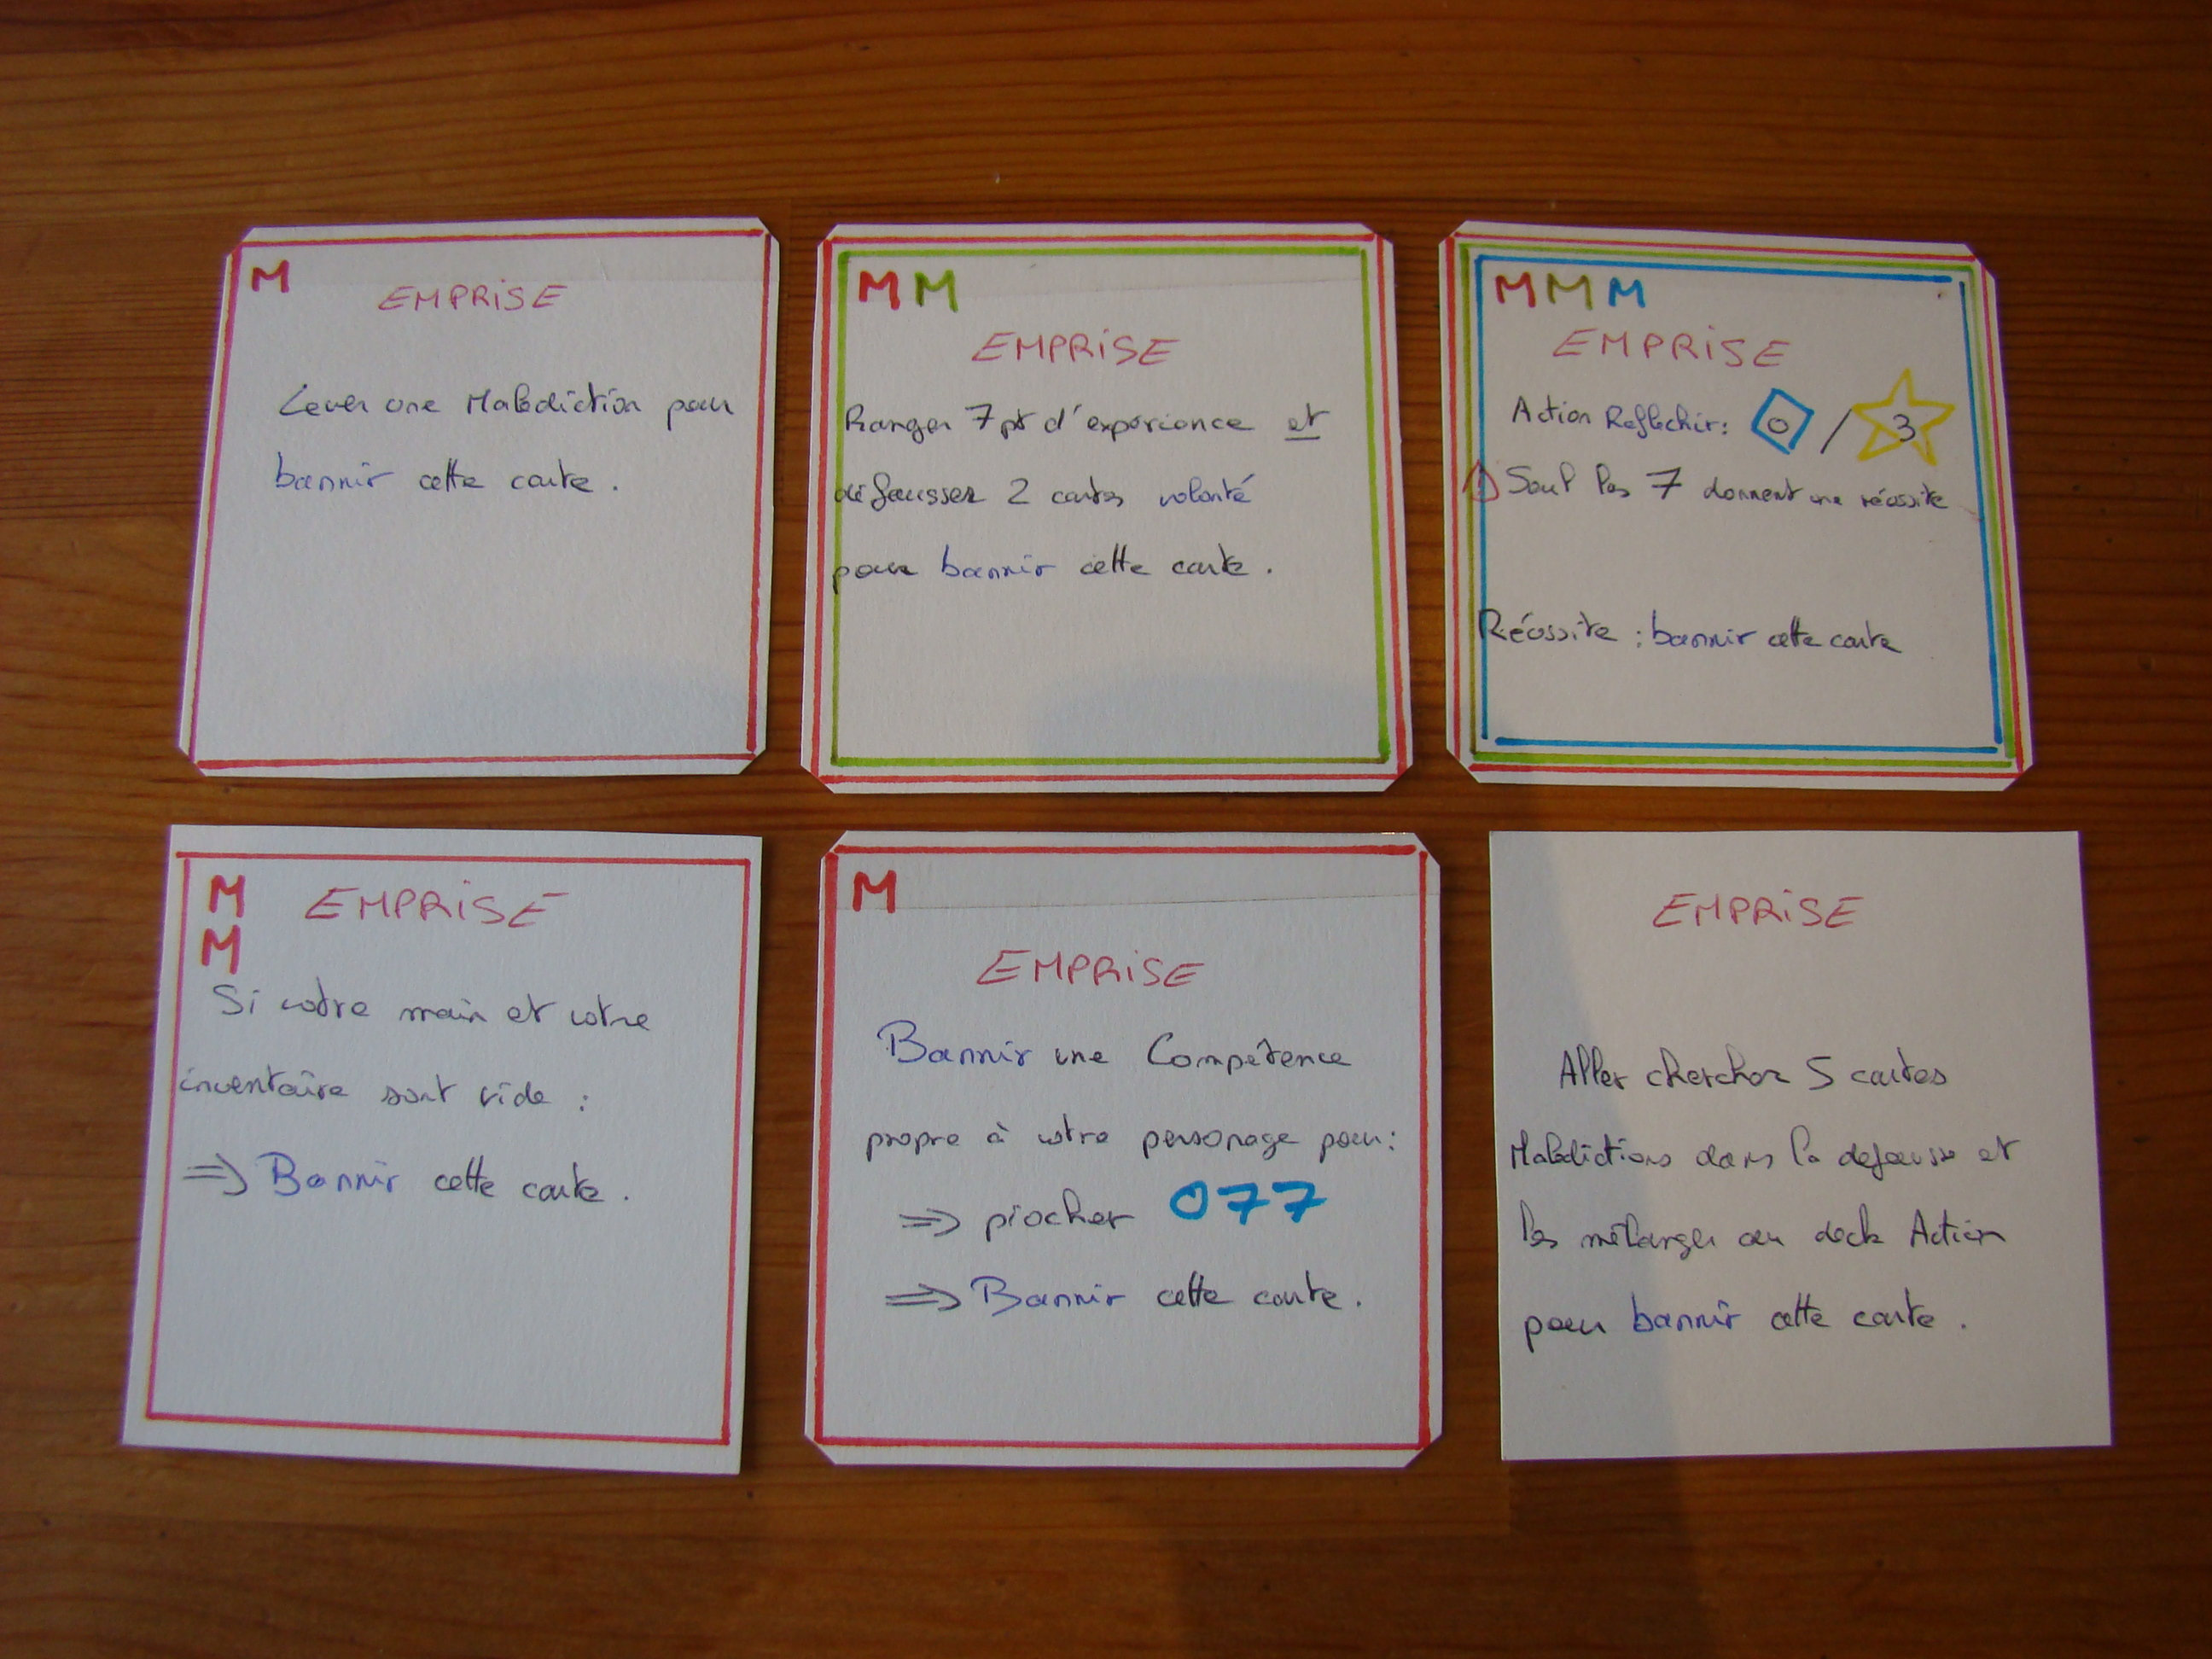 M
EMPRISE
Lever une Malediction pour
bannir cette carte.
M M
EMPRISE
Ranger 7 pt d'expérience et
défausser 2 cartes volonté
pour bannir cette carte.
M M M
EMPRISE
Action Reflechir: 0 / 3
Seul les 7 donnent une réussite
Réussite : bannir cette carte
M EMPRISE
M
Si votre main et votre
inventaire sont vide :
=> Bannir cette carte.
M
EMPRISE
Bannir une Compétence
propre à votre personage pour:
=> piocher 077
=> Bannir cette carte.
EMPRISE
Aller chercher 5 cartes
Maledictions dans la defausse et
les mélanger au deck Action
pour bannir cette carte.